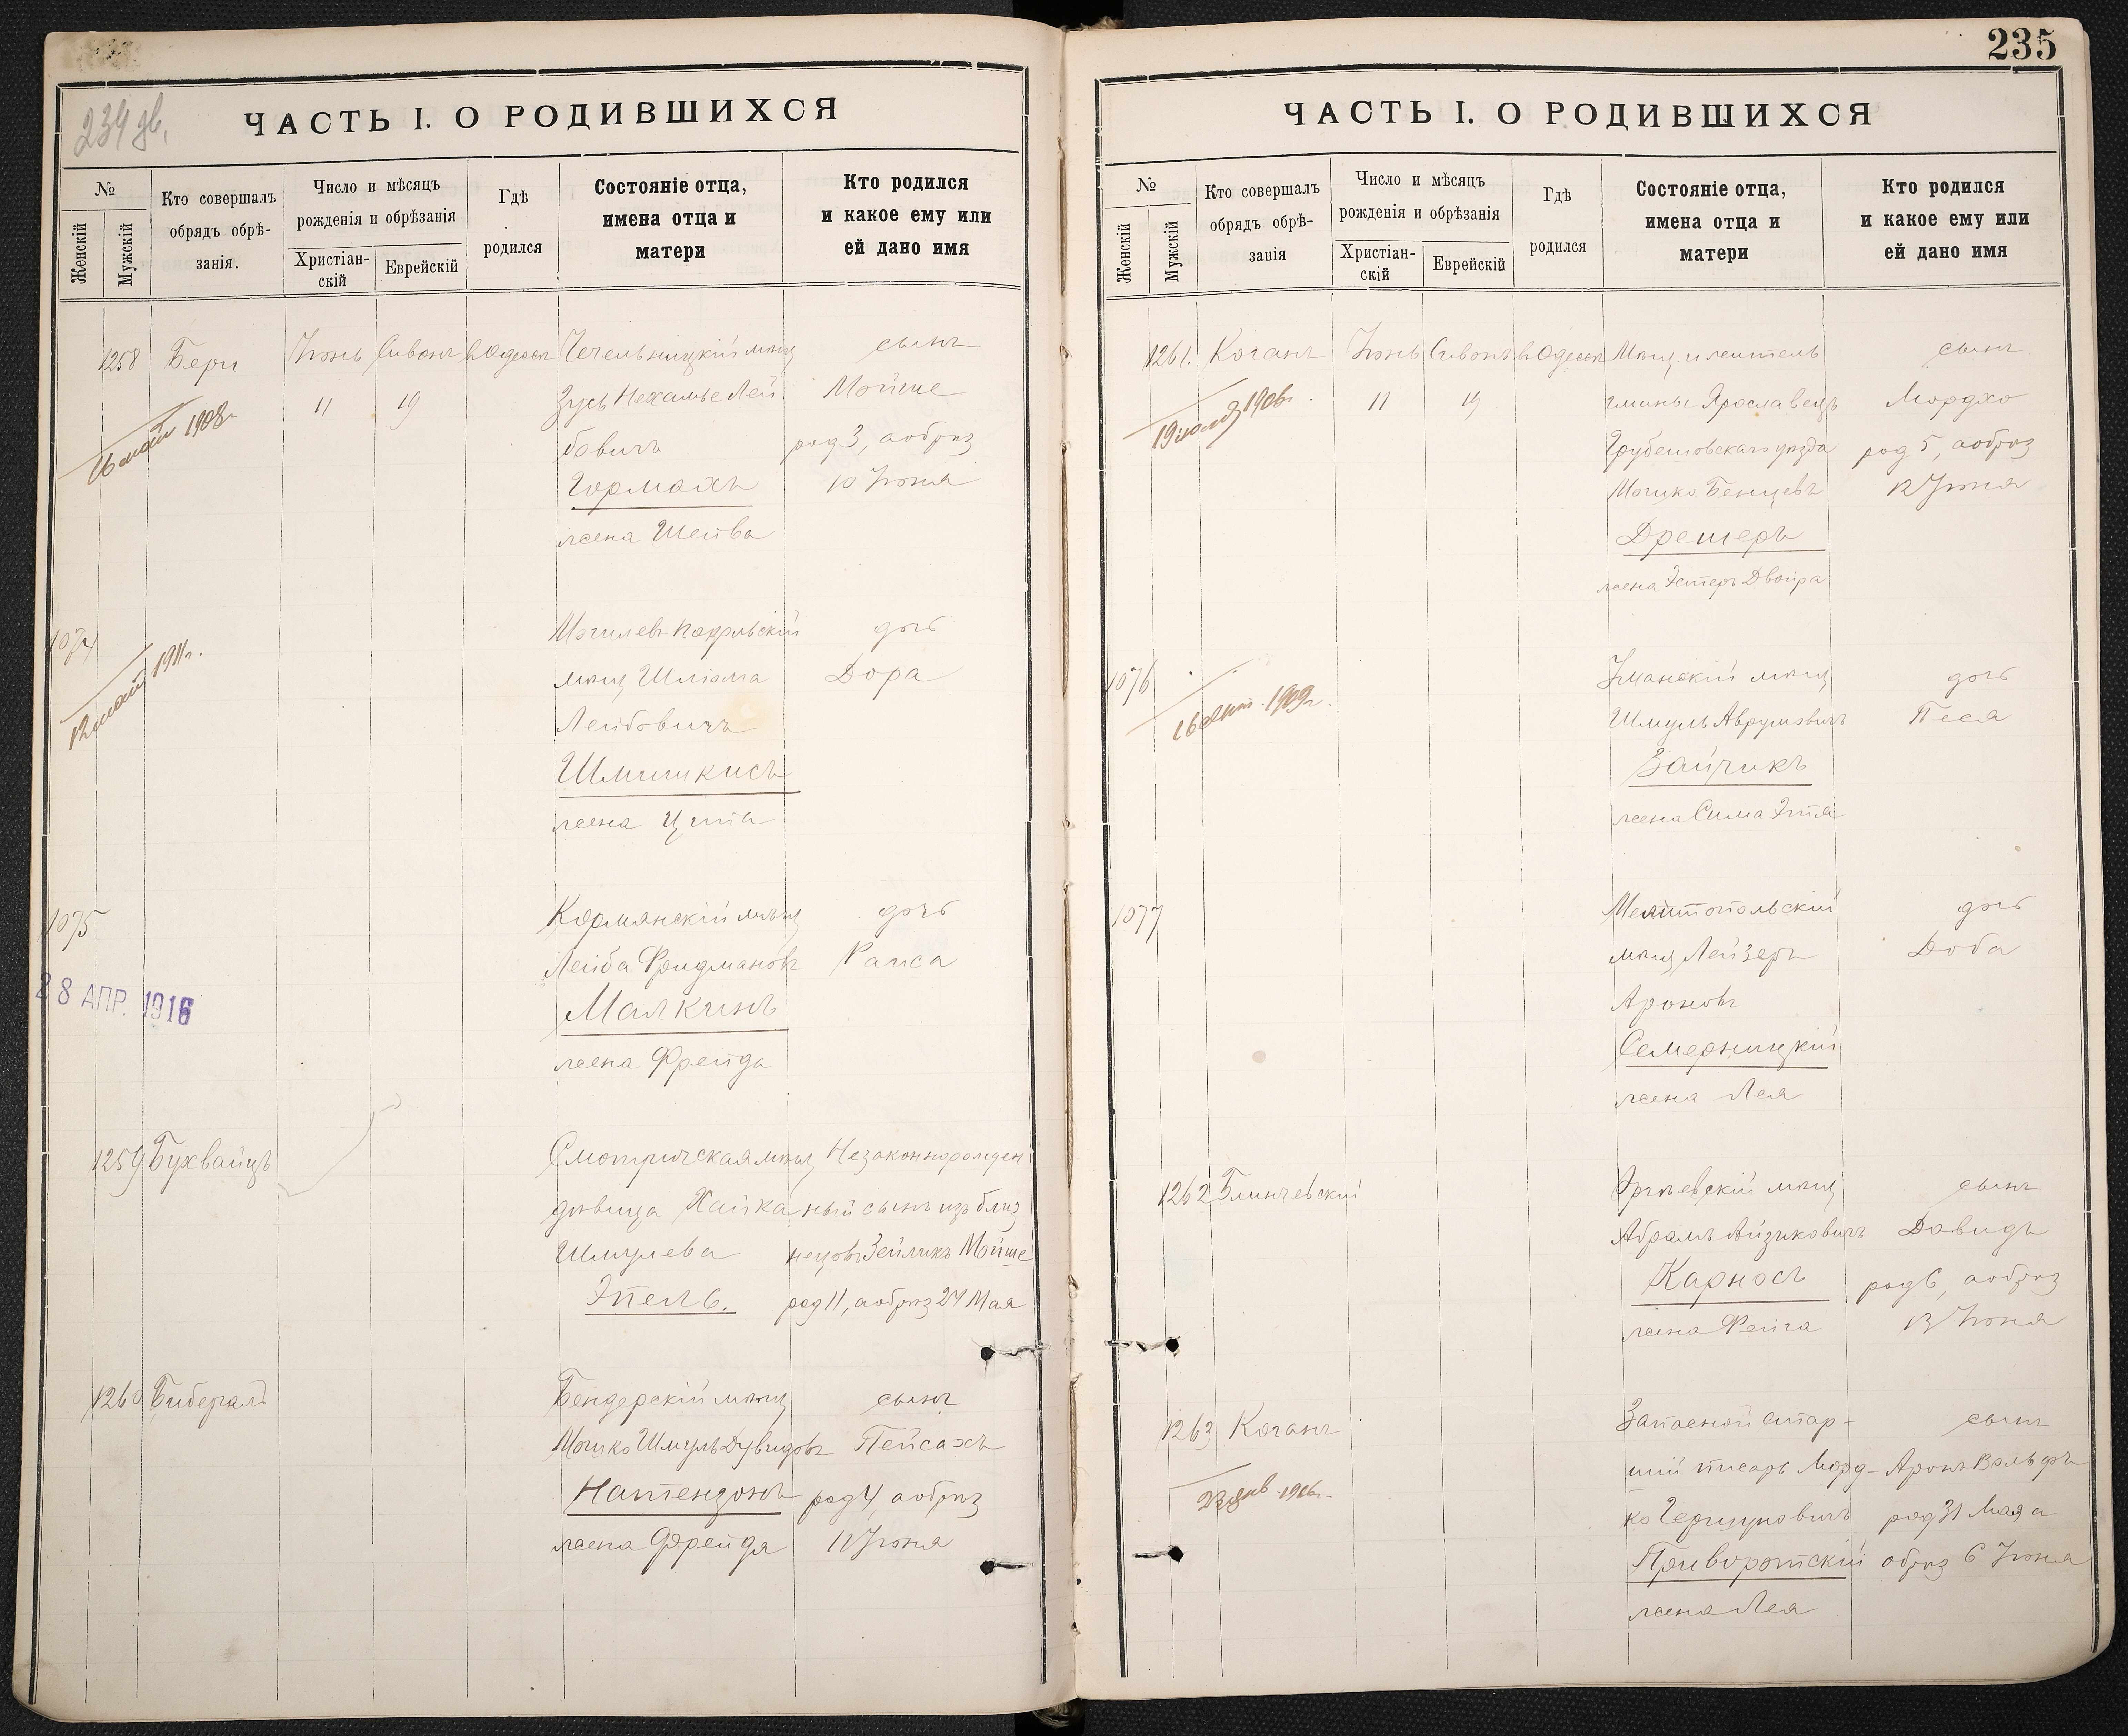 234 об.
ЧАСТЬ I. О РОДИВШИХСЯ
№
Женскій
Мужскій
Кто совершалъ
обрядъ обрѣ-
занія.
Число и мѣсяцъ
рожденія и обрѣзанія
Христіан-
скій
Еврейскій
Гдѣ
родился
Состояніе отца,
имена отца и
матери
Кто родился
и какое ему или
ей дано имя
1258 Бери Іюнь Сивонъ в Одессѣ Чечельницкій мѣщ сынъ
11 19 Зусь Нехамье Лей Мойше
1908г
бовичъ род 3, а обрѣз
Гормахъ 10 Іюня
жена Шейва
1074 Могилевъ Подольскій дочь
мѣщ Шліома Дора
12 мая 1911г.
Лейбовичъ
Шмишкисъ
жена Ципа
1075 Кормянскій мѣщ дочь
Лейба Фридмановъ Раиса
28 АПР. 1916
Малкинъ
жена Фрейда
1259 Бухвайцъ Смотричская мѣщ Незаконнорожден
девица Хайка ный сынъ изъ близ
Шмулева нецовъ Зейликъ Мойше
Эпель. род 11, а обрѣз 24 Мая
1260 Бибергалъ Бендерскій мѣщ сынъ
Мошко Шмуль Дувидовъ Пейсахъ
Натензонъ род 4, а обрѣз
жена Фрейда 11 Іюня
235
ЧАСТЬ I. О РОДИВШИХСЯ
№
Женскій
Мужскій
Кто совершалъ
обрядъ обрѣ-
занія
Число и мѣсяцъ
рожденія и обрѣзанія
Христіан-
скій
Еврейскій
Гдѣ
родился
Состояніе отца,
имена отца и
матери
Кто родился
и какое ему или
ей дано имя
1261. Коганъ Іюнь Сивонъ в Одессѣ Мѣщ. и житель сынъ
11 19 гмины Ярославецъ Мордхо
19 1906г.
Грубешовскаго уѣзда род 5, а обрѣз
Мошко Бенцевъ 12 Іюня
Дрешеръ
жена Эстеръ Двойра
1076 Уманскій мѣщ дочь
16 1909г.
Шмуль Аврумовичъ Песя
Зайчикъ
жена Сима Этя
1077 Мелитопольскій дочь
мѣщ Лейзеръ Доба
Ароновъ
Семерницкій
жена Лея
1262 Блинчевскій мѣщ сынъ
Абрамъ Айзиковичъ Давидъ
Карносъ род 6, а обрѣз
жена Фейга 13 Іюня
1263 Коганъ Запасной стар- сынъ
шій писарь Морд- Аронъ Вольфъ
1916г.
ко Гершуновичъ род 31 Мая а
Приворотскій обрѣз 6 Іюня
жена Лея